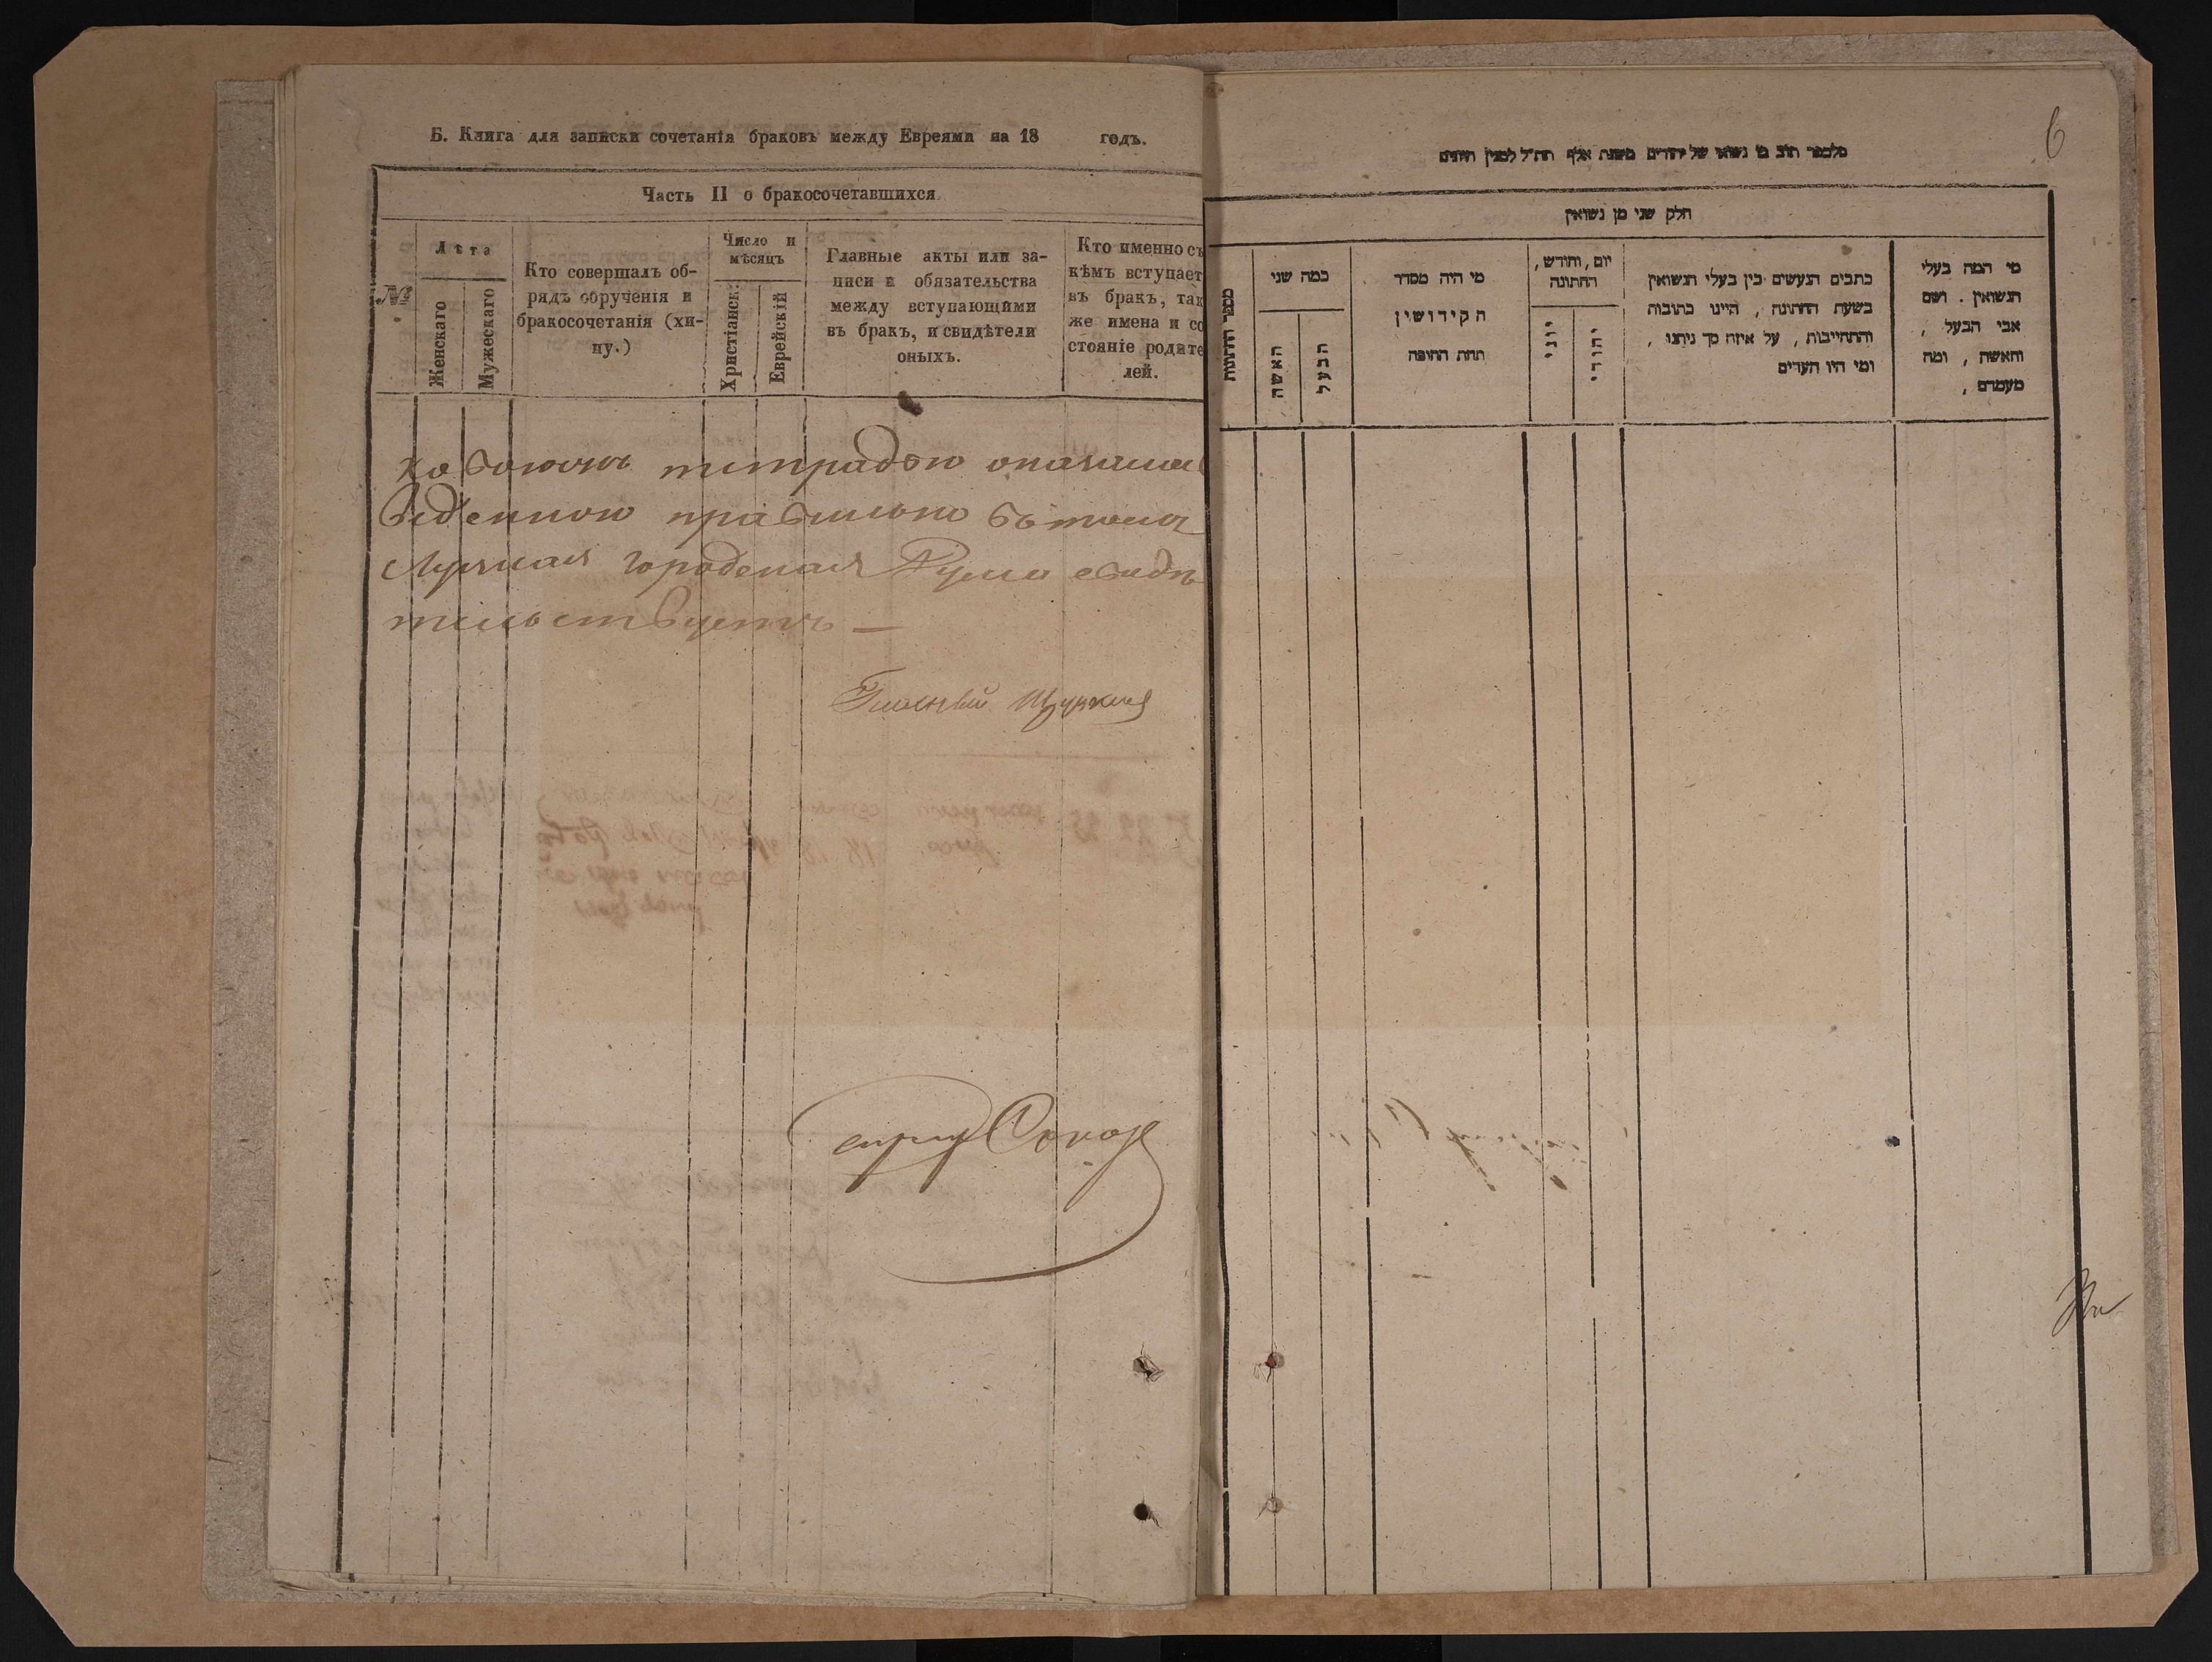 Б. Книга для записки сочетанія браковъ между Евреями на 18 годъ.
Часть II о бракосочетавшихся.
№
Лѣта
Женскаго
Мужескаго
Кто совершалъ об-
рядъ обрученія и
бракосочетанія (хи-
пу.)
Число и
мѣсяцъ
Христіанск:
Еврейскій
Главные акты или за-
писи и обязательства
между вступающими
въ бракъ, и свидѣтели
оныхъ.
Кто именно съ
кѣмъ вступает
въ бракъ, так
же имена и со
стояніе родите
лей.
тетрадью оказалас
веденною правильно въ томъ
Луцкая городская Дума свидѣ
тельствуетъ —
Гласный
6
חלק שני מן נשואין
מספר החתונות
כמה שני
האשה
הבעל
מי היה מסדר
הקידושין
תחת החופה
יום, וחודש,
החתונה
יוני
יהודי
כתבים הנעשים בין בעלי הנשואין
בשעת החתונה, היינו כתובות
והתחייבות, על איזה סך ניתנו,
ומי היו העדים
מי המה בעלי
הנשואין. ושם
אבי הבעל,
והאשה, ומה
מעמדם,